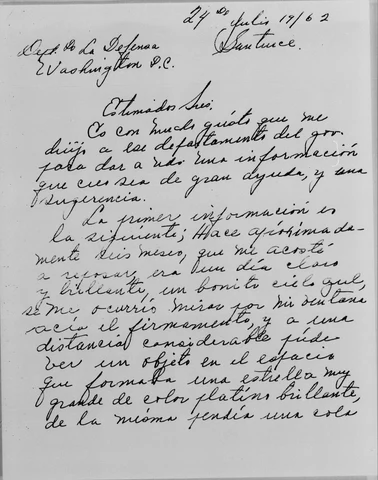 24 de Julio 19/62
Dept. de La Defensa Santurce.
Washington D.C.
Estimados Sres:
Es con mucho gusto que me
dirijo a ese departamento del gov.
para dar a uds una información
que creo sea de gran ayuda, y una
sugerencia.
La primer información es
la siguiente; Hace aproximada-
mente seis meses, que me acosté
a reposar, era un día claro
y brillante, un bonito cielo azul,
se me, ocurrió mirar por mi ventana
acia el firmamento, y a una
distancia considerable pude
ver un objeto en el espacio
que formaba una estrella muy
grande de color platino brillante,
de la misma pendía una cola